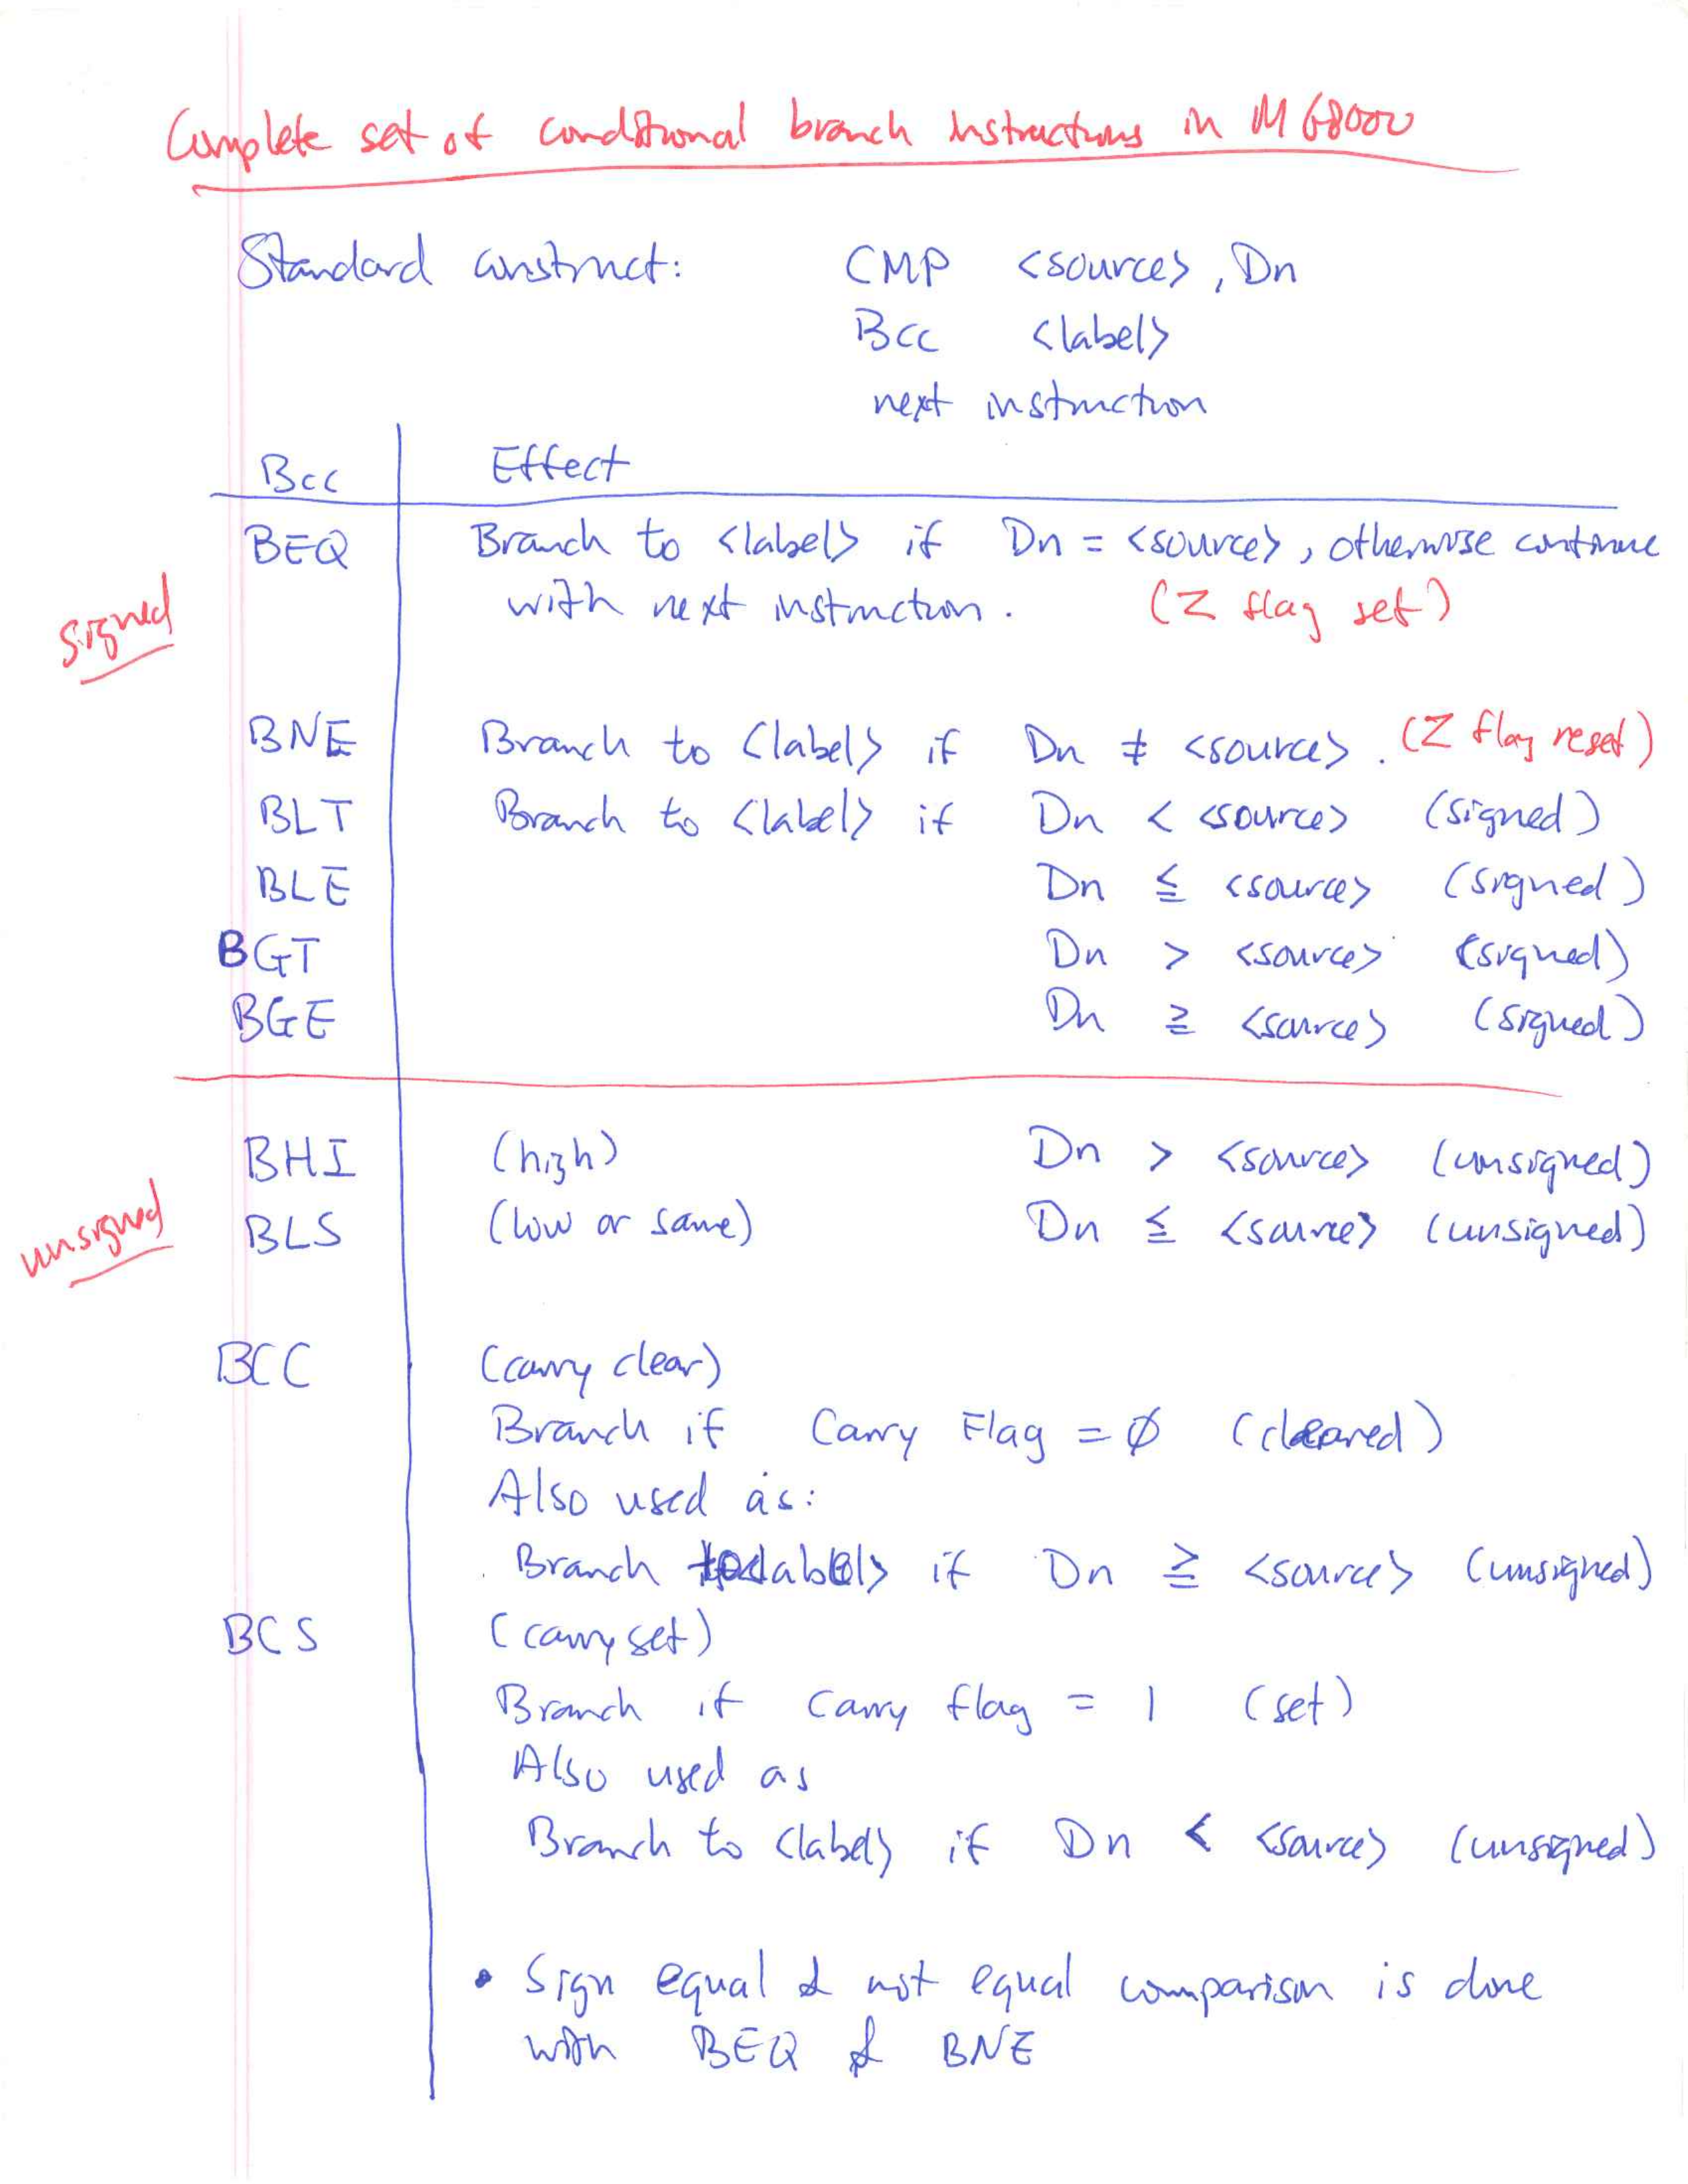 Complete set of conditional branch instructions in M68000
Standard construct: CMP <source>, Dn
Bcc <label>
next instruction
Bcc Effect
BEQ Branch to <label> if Dn = <source>, otherwise continue
with next instruction. (Z flag set)
signed
BNE Branch to <label> if Dn ≠ <source>. (Z flag reset)
BLT Branch to <label> if Dn < <source> (signed)
BLE Dn ≤ <source> (signed)
BGT Dn > <source> (signed)
BGE Dn ≥ <source> (signed)
BHI (high) Dn > <source> (unsigned)
unsigned
BLS (low or same) Dn ≤ <source> (unsigned)
BCC (carry clear)
Branch if Carry Flag = Ø (cleared)
Also used as:
Branch to <label> if Dn ≥ <source> (unsigned)
BCS (carry set)
Branch if Carry flag = 1 (set)
Also used as
Branch to <label> if Dn < <source> (unsigned)
• Sign equal & not equal comparison is done
with BEQ & BNE